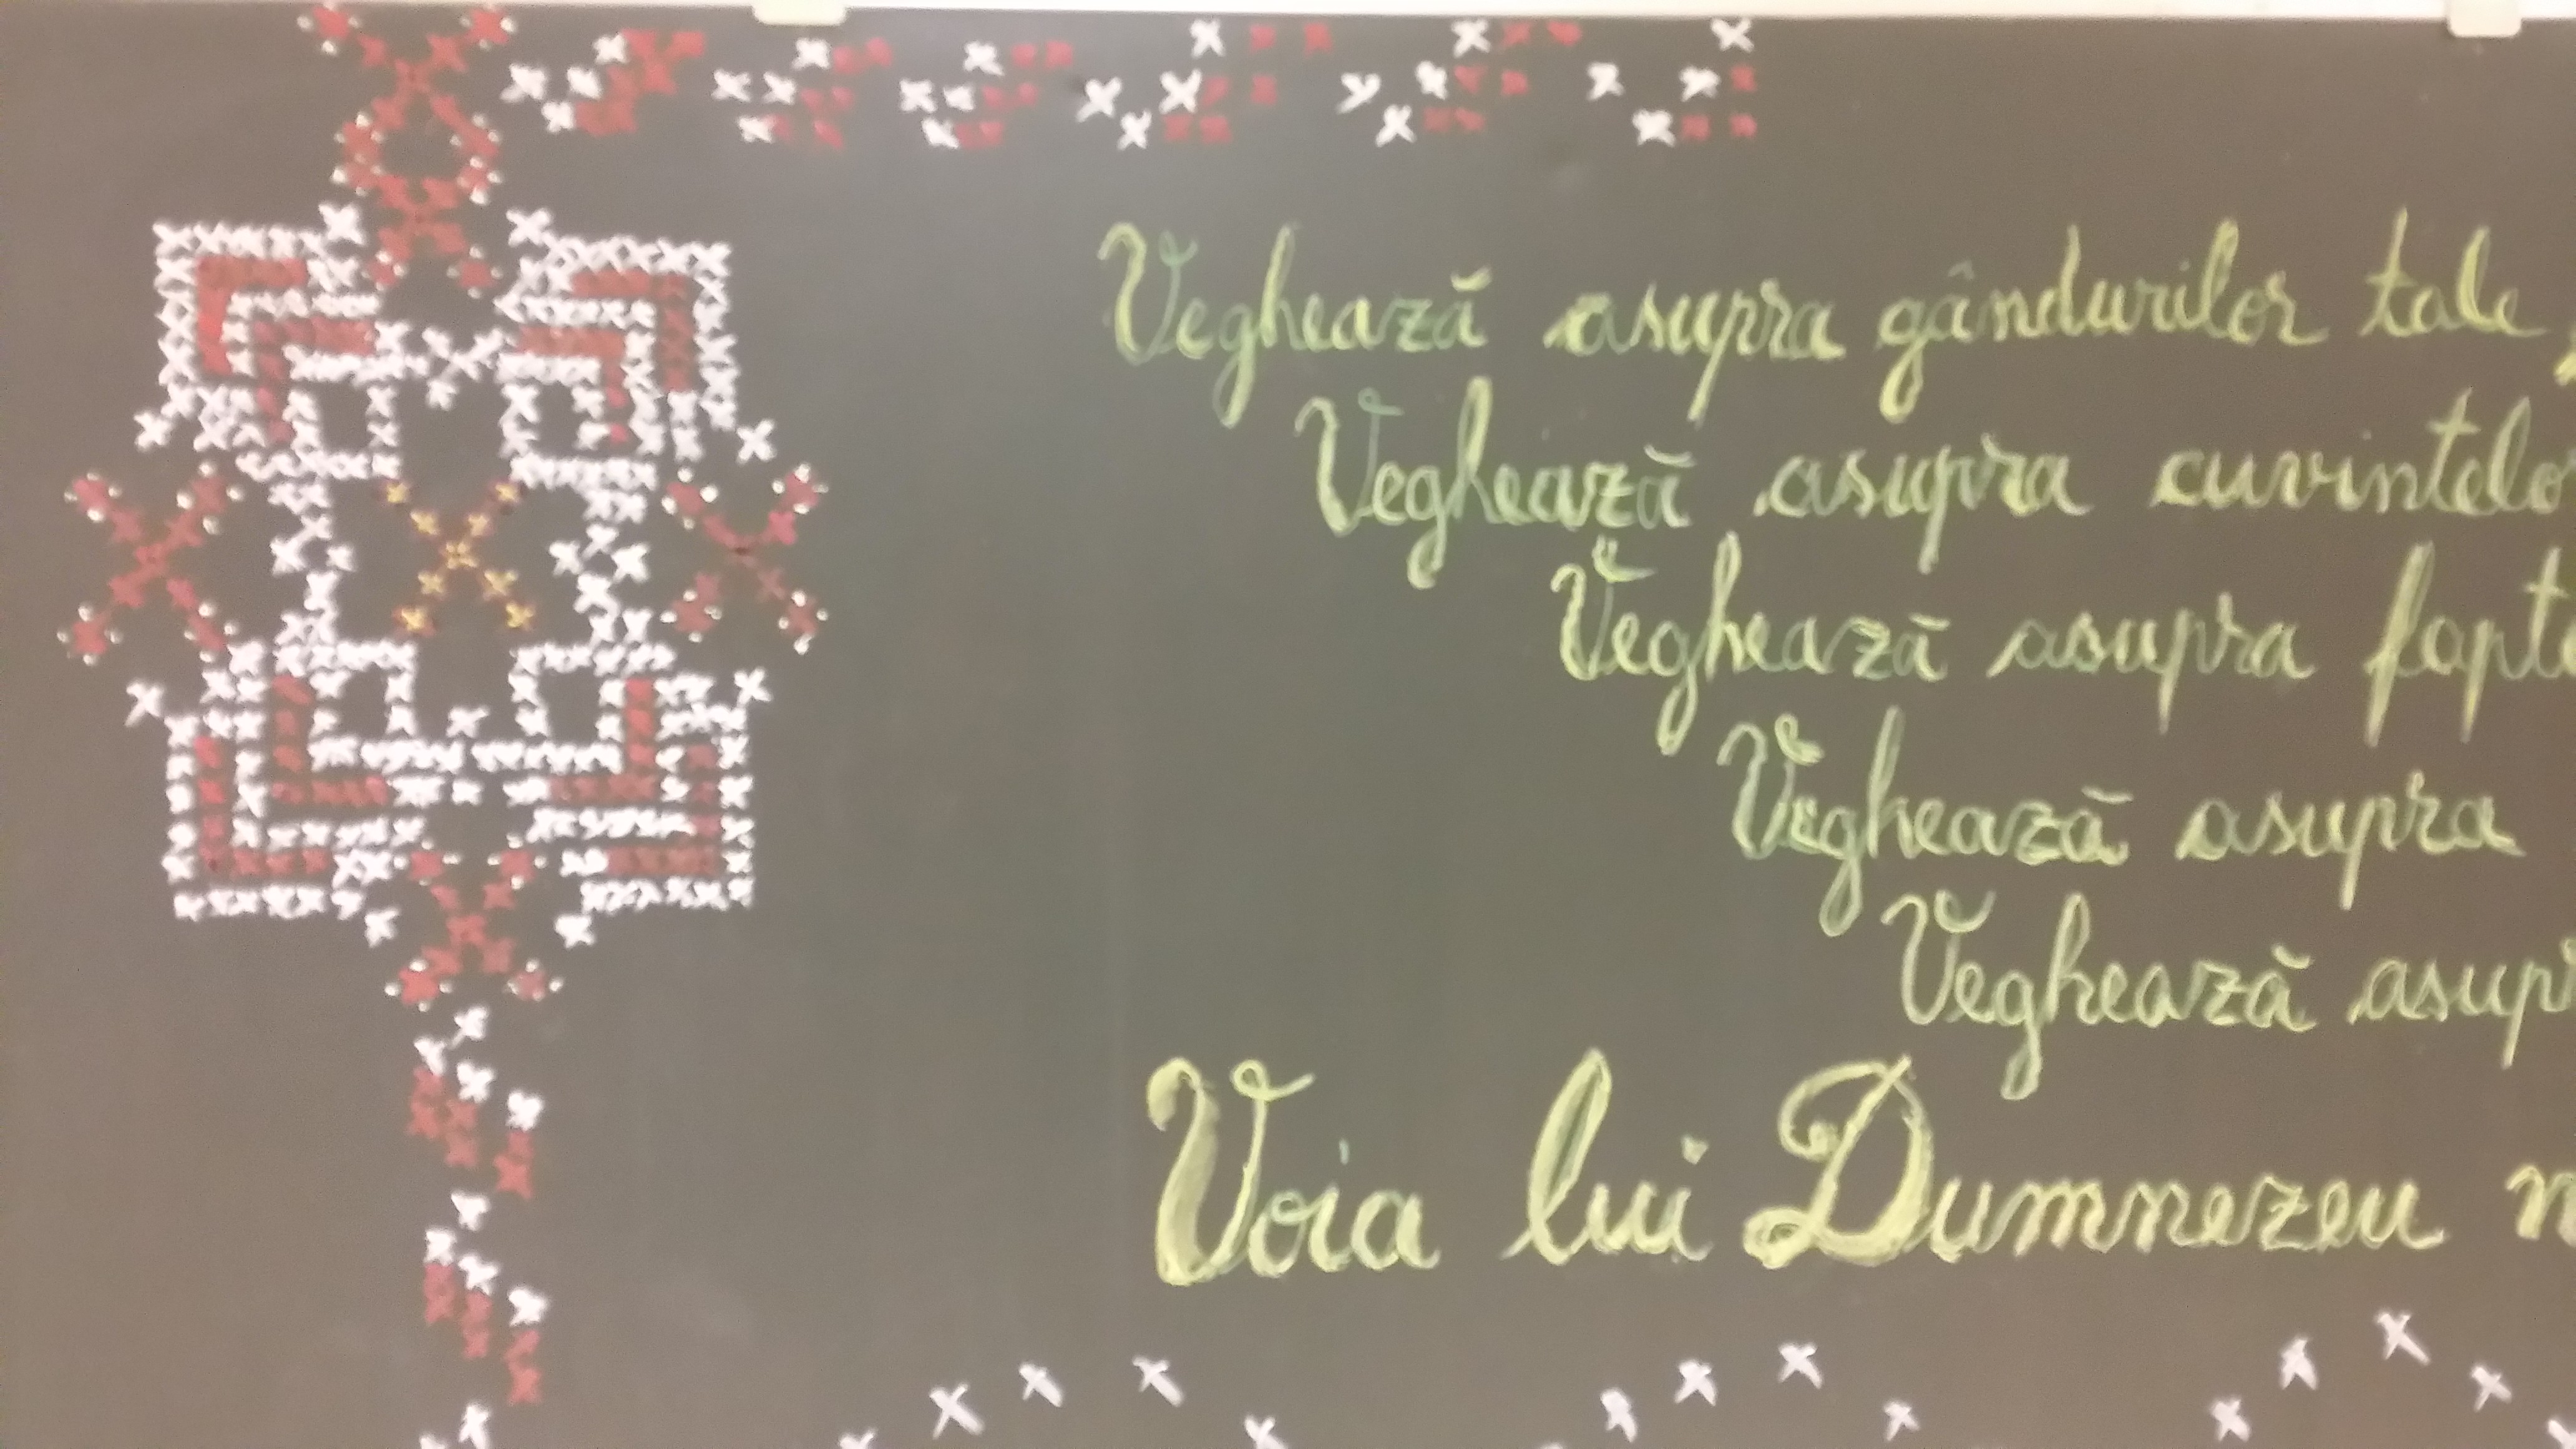 Veghează asupra gândurilor tale
Veghează asupra
Veghează asupra
Veghează asupra
Veghează
Voia lui Dumnezeu